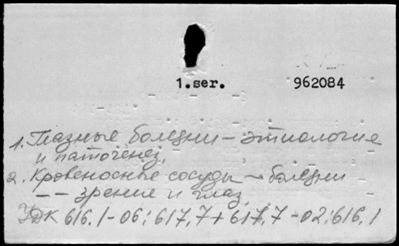 1.ser. 962084
1. Глазные болезни – этиология
и патогенез.
2. Кровеносные сосуды – болезни
– – зрение и глаз.
УДК 616.1-06:617.7+617.7-02:616.1